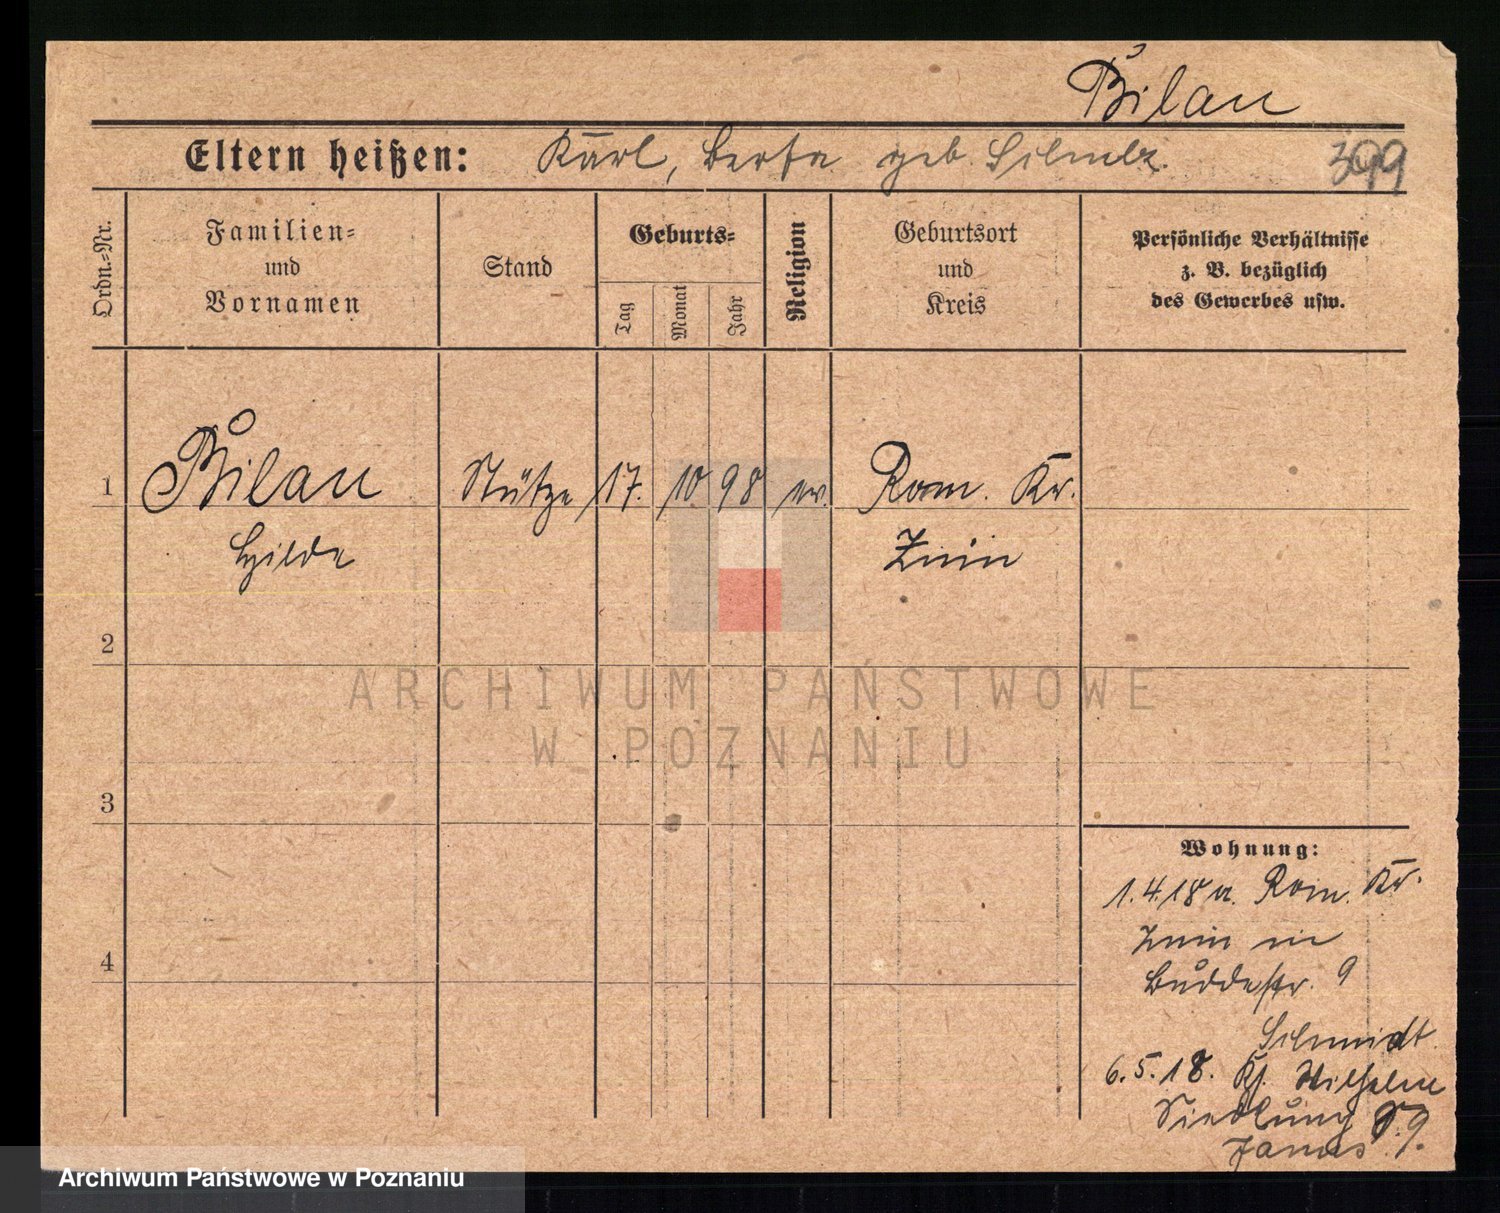 Bilau
Eltern heißen: Karl, Berta geb. Schulz.
399
Ordn.-Nr.
Familien-
und
Vornamen
Stand
Geburts-
Tag
Monat
Jahr
Religion
Geburtsort
und
Kreis
Persönliche Verhältnisse
z. B. bezüglich
des Gewerbes usw.
1
Bilau
Hilde
Stütze
17.
10
98
ev.
Rom. Kr.
Znin
2
3
4
Wohnung:
1.4.18 a. Rom. Kr.
Znin in
Buddestr. 9
Schmidt
6.5.18. Kf. Wilhelm
Siedlung 59
ARCHIWUM PAŃSTWOWE
W POZNANIU
Archiwum Państwowe w Poznaniu